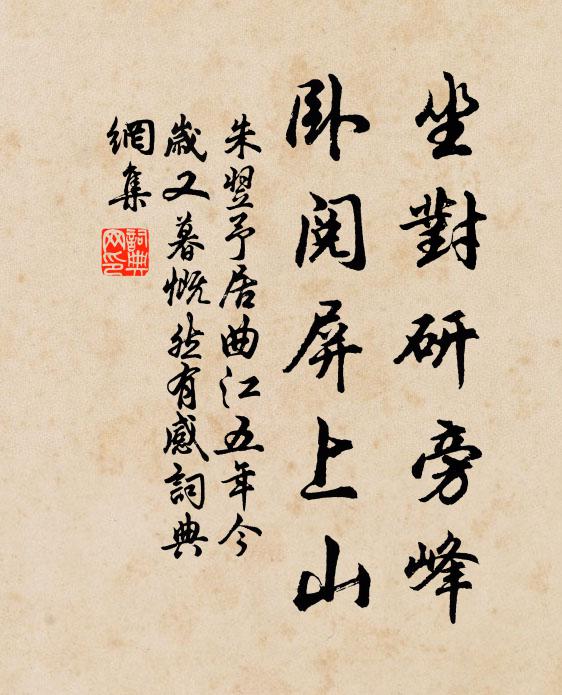 坐對研旁峰
卧閱屏上山
朱翌予居曲江五年今
歲又暮慨然有感詞典
網集
詞典
網印